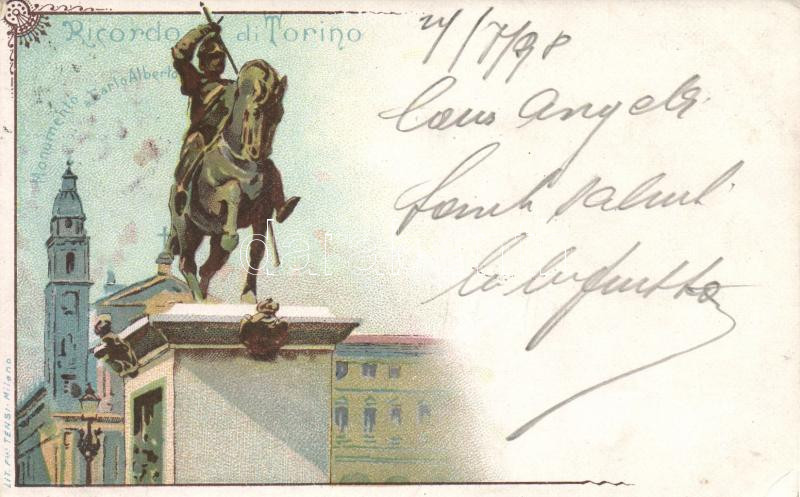 Ricordo di Torino
Monumento a Carlo Alberto
24/7/98
Caro Angelo
tanti saluti
LIT. FIII TENSI - Milano